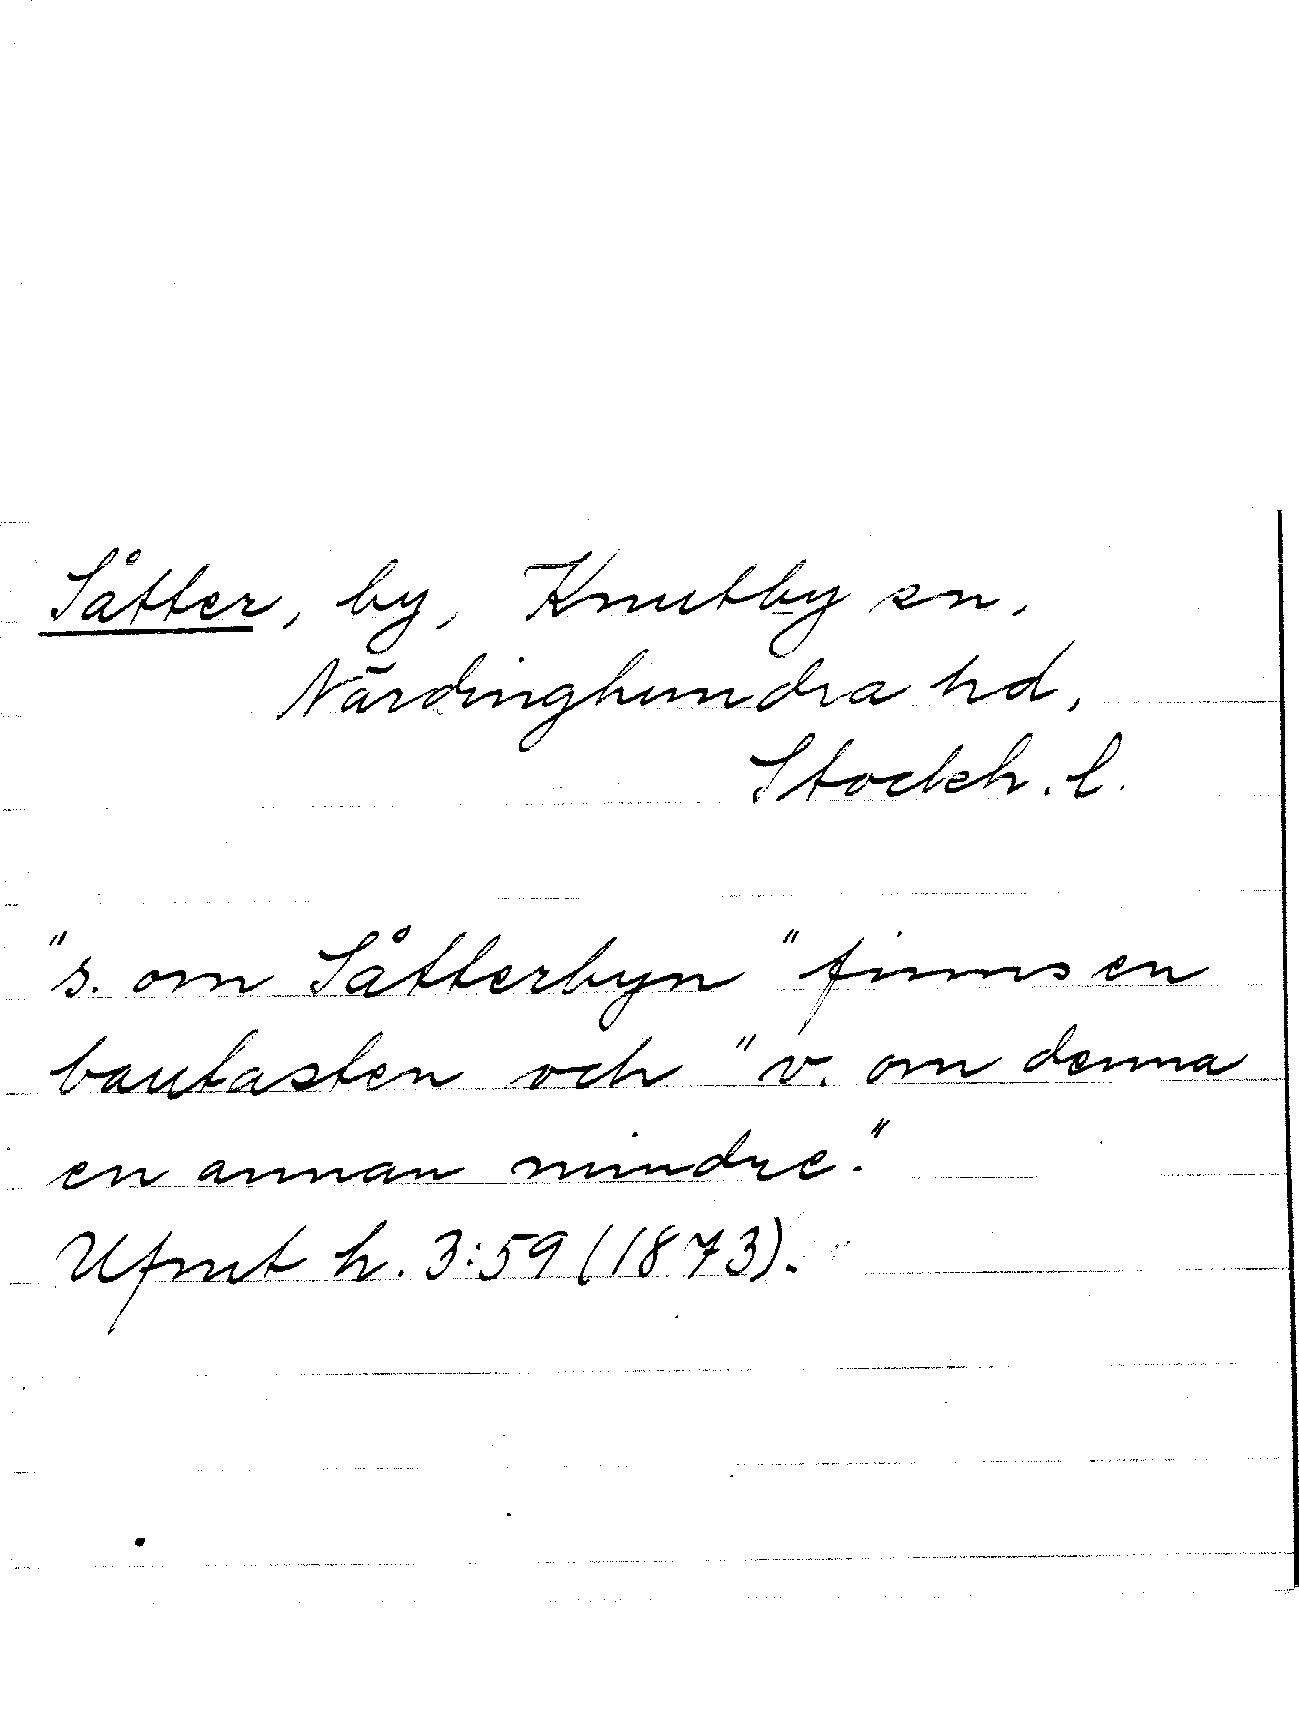 Såtter, by, Knutby sn,
Närdinghundra hd,
Stockh. l.
"s. om Såtterbyn" finns en
bautasten och "v. om denna
en annan mindre."
Ufmt h. 3:59 (1873).